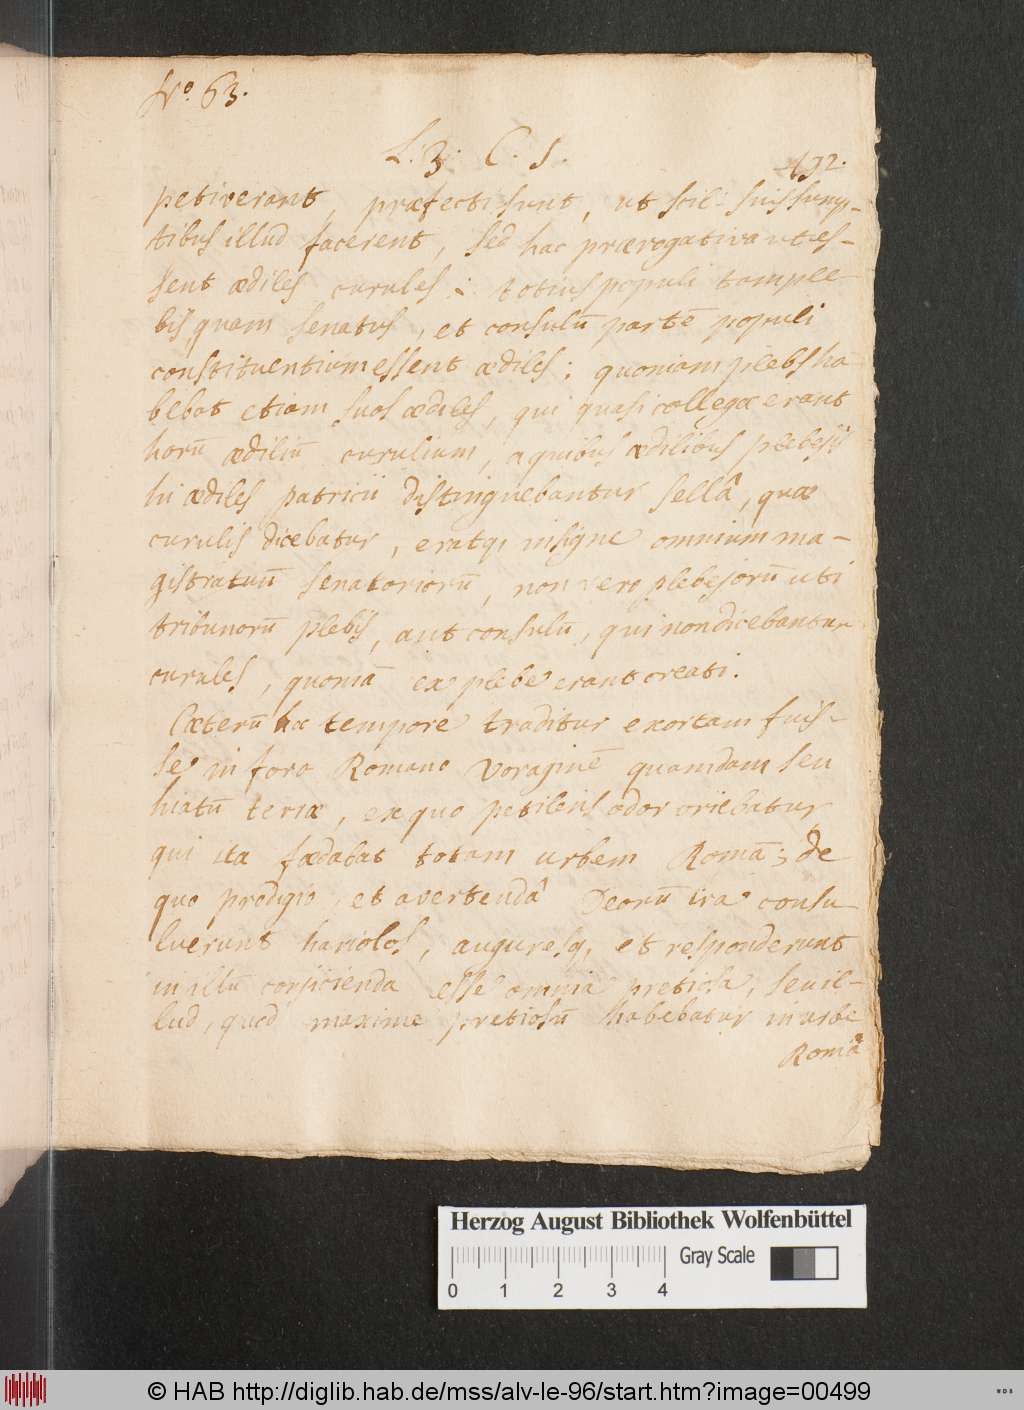 No. 63.
L. 3. C. 1.
492.
petiverant, præfecti sunt, ut scil: suis sump-
tibus illud facerent, sed hac prærogativa ut es-
sent ædiles curules i. totius populi tam ple-
bis, quam senatus, et consulū partē populi
constituentium essent ædiles: quoniam plebs ha-
bebat etiam suos ædiles, qui quasi collegæ erant
horū ædiliū curulium, a quibus ædilibus plebeijs
hi ædiles patricii distinguebantur sellâ, quæ
curulis dicebatur, eratq, insigne omnium ma-
gistratuū senatoriorū, non vero plebejorū uti
tribunorū plebis, aut consulū, qui non dicebantur
curules, quoniā ex plebe erant creati.
Cæterū hoc tempore traditur exortam fuis-
se in foro Romano voraginē quamdam seu
hiatū terræ, ex quo pestilens odor oriebatur
qui ita fœdabat totam urbem Romā; de
quo prodigio, et avertendâ Deorū ira consu-
luerunt hariolos, auguresq, et responderunt
in illū conjicienda esse omnia pretiosa, seu il-
lud, quod maxime pretiosū habebatur in urbe
Romā
Herzog August Bibliothek Wolfenbüttel
0 1 2 3 4
Gray Scale
© HAB http://diglib.hab.de/mss/alv-le-96/start.htm?image=00499